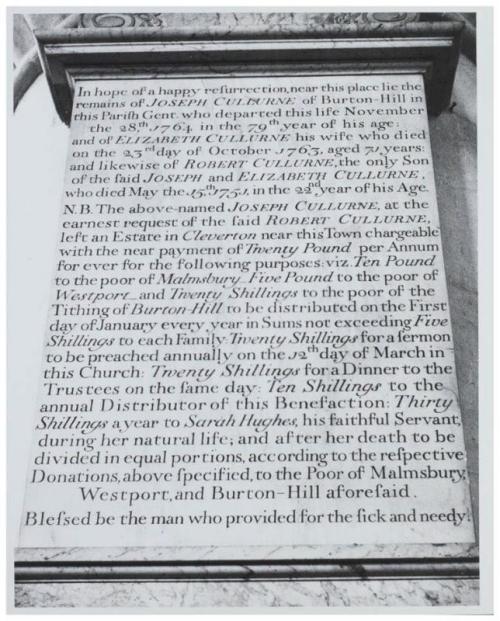 In hope of a happy reſurrection, near this place lie the
remains of JOSEPH CULLURNE of Burton-Hill in
this Pariſh Gent. who departed this life November
the 28,th 1764. in the 79th year of his age:
and of ELIZABETH CULLURNE his wife who died
on the 23rd day of October 1763, aged 71, years:
and likewise of ROBERT CULLURNE, the only Son
of the ſaid JOSEPH and ELIZABETH CULLURNE,
who died May the 15,th 1751, in the 22nd year of his Age.
N.B. The above-named JOSEPH CULLURNE, at the
earnest request of the ſaid ROBERT CULLURNE,
left an Estate in Cleverton near this Town chargeable
with the neat payment of Twenty Pound per Annum
for ever for the following purposes: viz. Ten Pound
to the poor of Malmsbury Five Pound to the poor of
Westport and Twenty Shillings to the poor of the
Tithing of Burton-Hill to be distributed on the First
day of January every year in Sums not exceeding Five
Shillings to each Family: Twenty Shillings for a ſermon
to be preached annually on the 12th day of March in
this Church: Twenty Shillings for a Dinner to the
Trustees on the ſame day: Ten Shillings to the
annual Distributor of this Benefaction: Thirty
Shillings a year to Sarah Hughes, his faithful Servant,
during her natural life; and after her death to be
divided in equal portions, according to the reſpective
Donations, above ſpecified, to the Poor of Malmsbury,
Westport, and Burton-Hill aforeſaid.
Bleſsed be the man who provided for the ſick and needy!